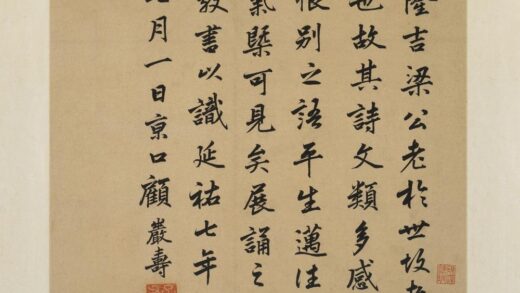 隆吉梁公老於世故
也故其詩文類多感
恨别之語平生邁往
氣槩可見矣展誦之
敬書以識延祐七年
月一日京口顧巖壽